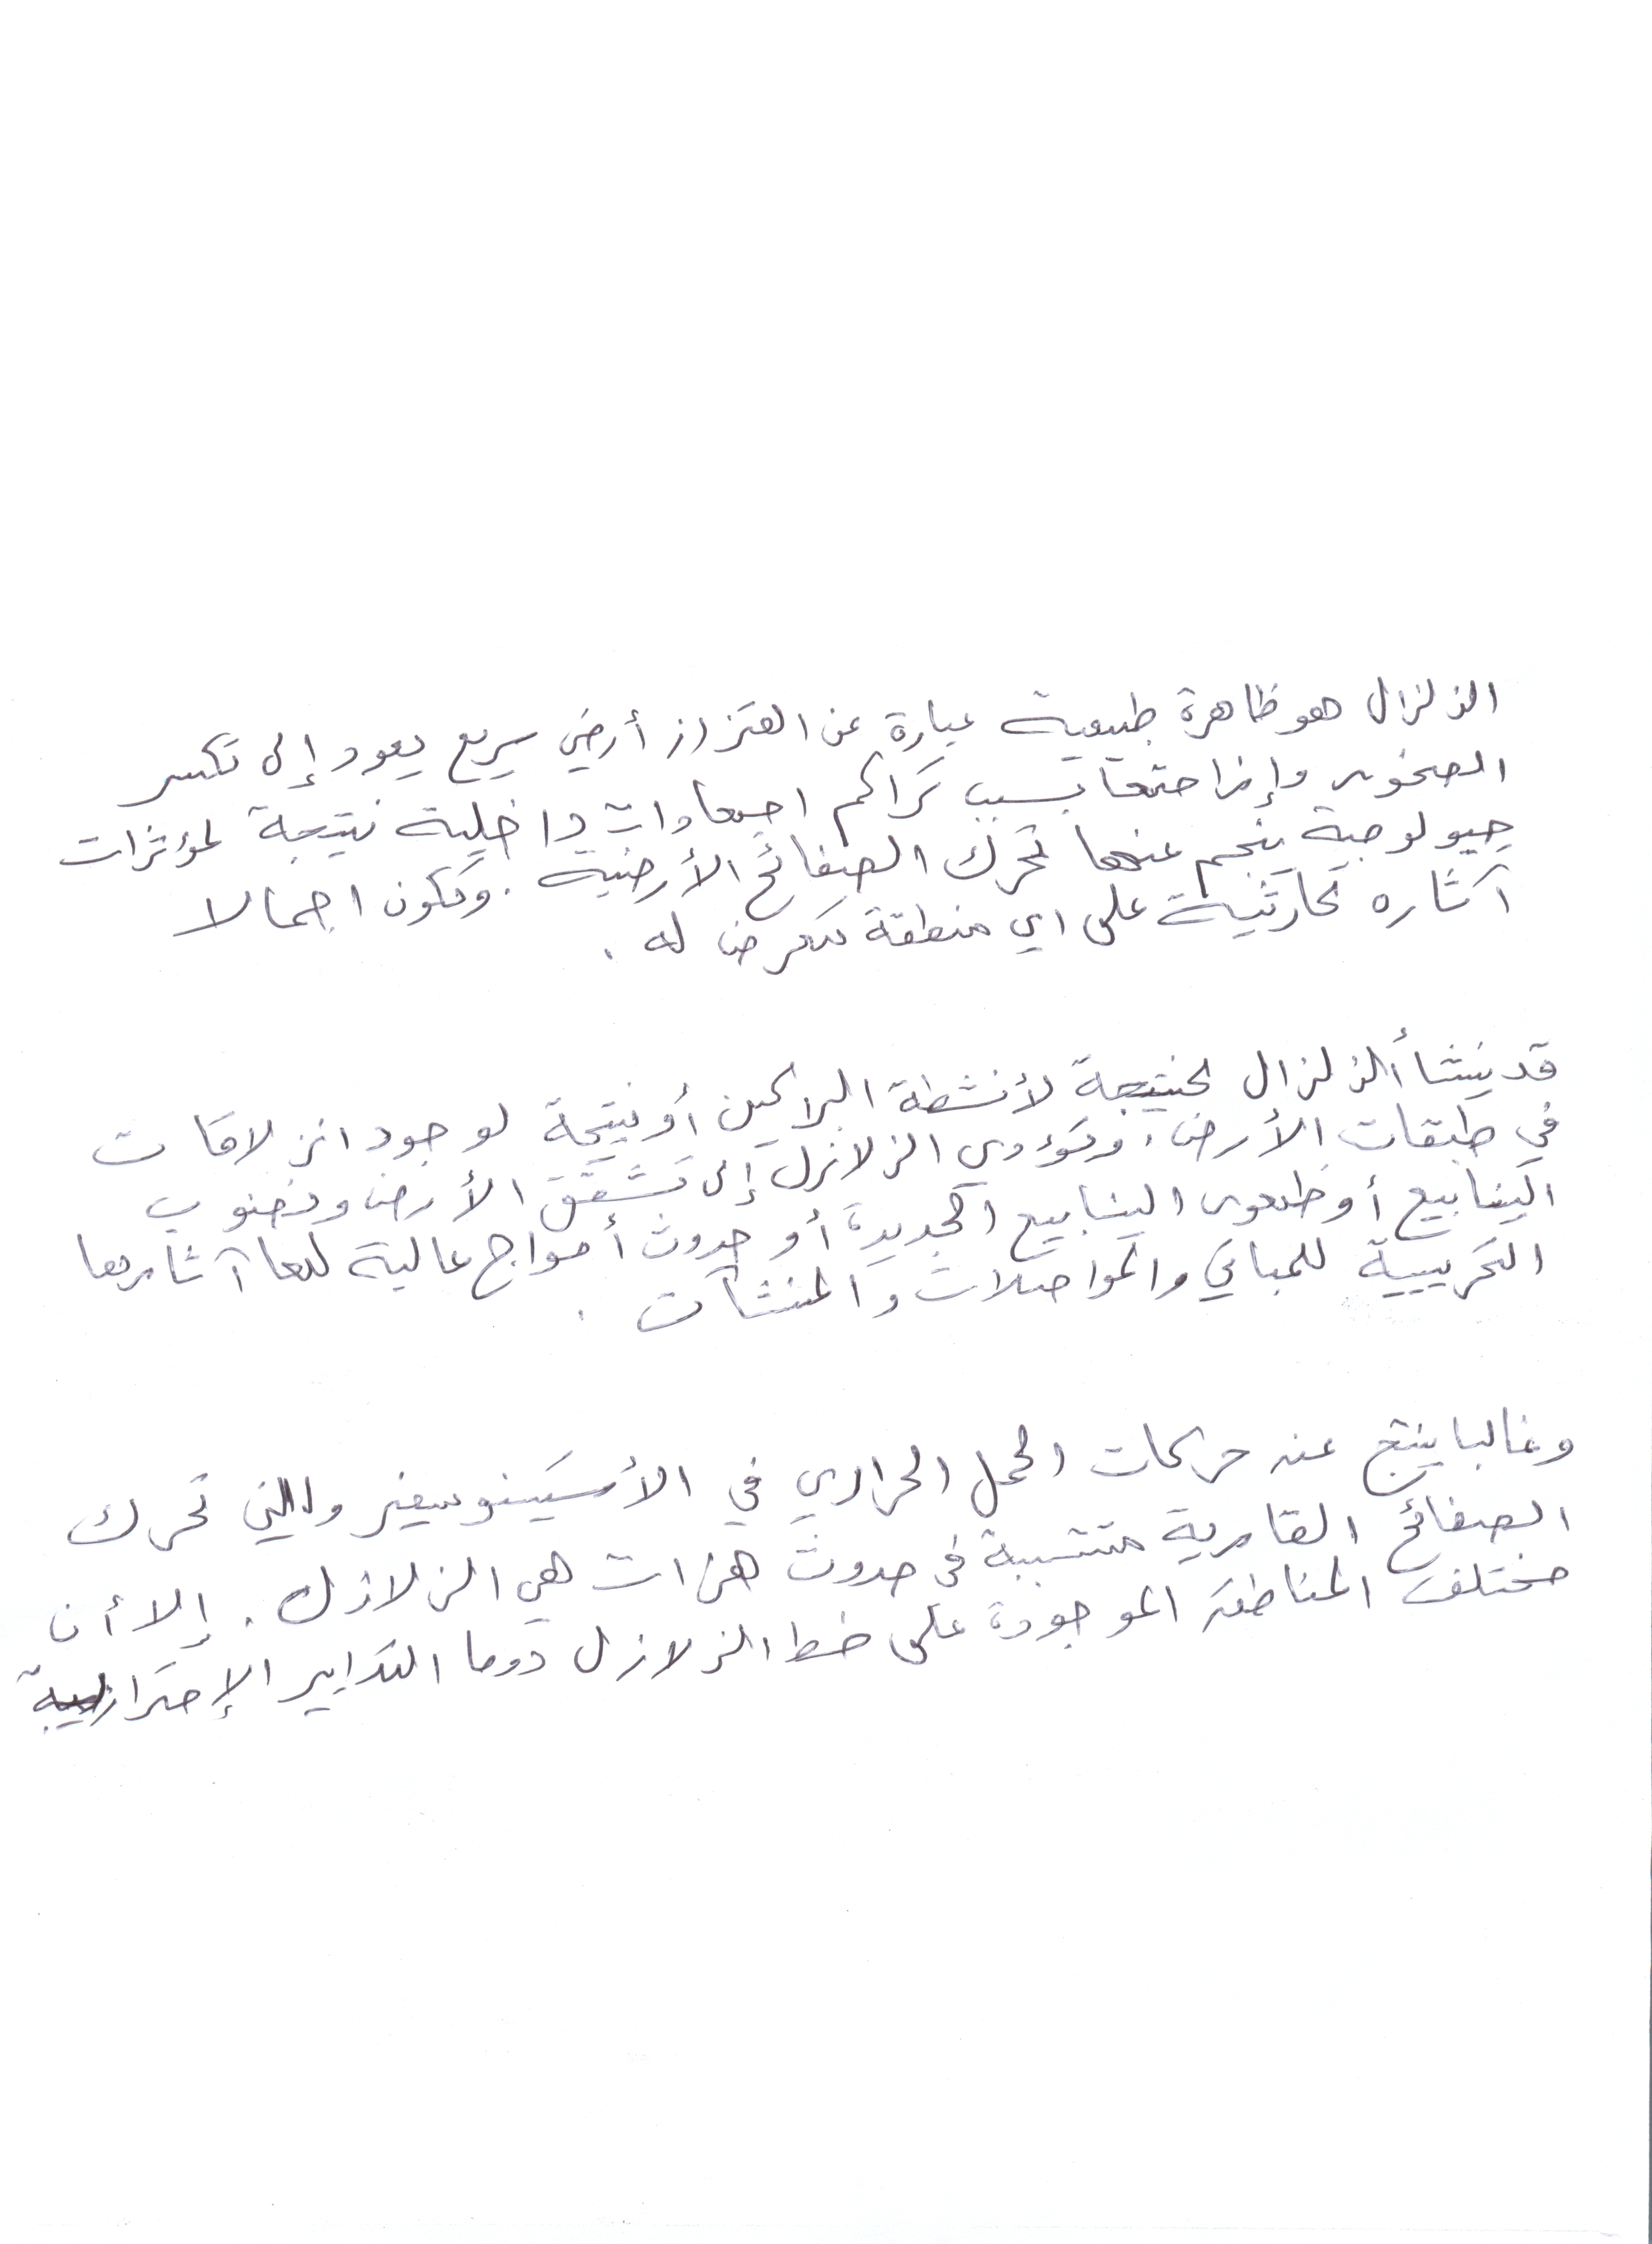 الزلزال هو ظاهرة طبيعية عبارة عن اهتزاز أرضي سريع يعود إلى تكسر
الصخور وإزاحتها بسبب تراكم اجهادات داخلية نتيجة لمؤثرات
جيولوجية ينجم عنها تحرك الصفائح الأرضية. وتكون اجمالا
آثاره كارثية على اي منطقة تتعرض له.
قد ينشأ الزلزال كنتيجة لأنشطة البراكين أو نتيجة لوجود انزلاقات
في طبقات الأرض، وتؤدي الزلازل إلى تشقق الأرض ونضوب
الينابيع أو ظهور الينابيع الجديدة أو حدوث أمواج عالية لها آثارها
التخريبية للمباني والمواصلات والمنشآت.
وغالبا ينتج عن حركات الحمل الحراري في الأستينوسفير والتي تحرك
الصفائح القارية متسببة في حدوث هزات هي الزلازل. إلا أن
مختلف المناطق الموجودة على خط الزلازل دوما التدابير الإحترازية